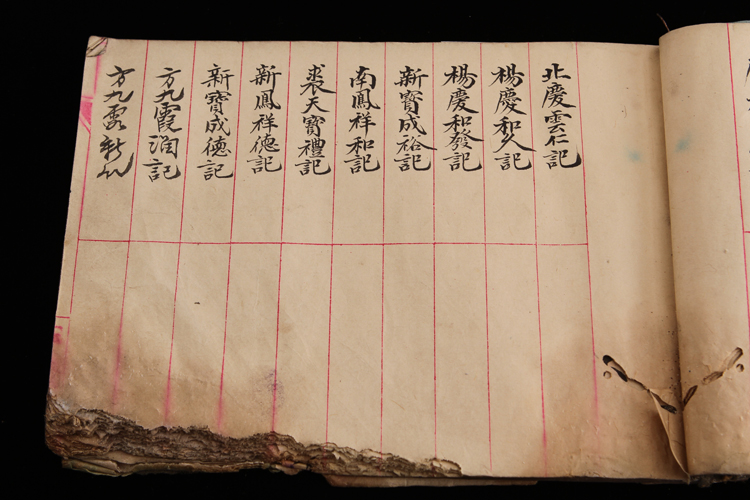 北慶雲仁記
楊慶和久記
楊慶和發記
新寳成裕記
南鳳祥和記
裘天寳禮記
新鳳祥德記
新寳成德記
方九霞潤記
方九霞新記